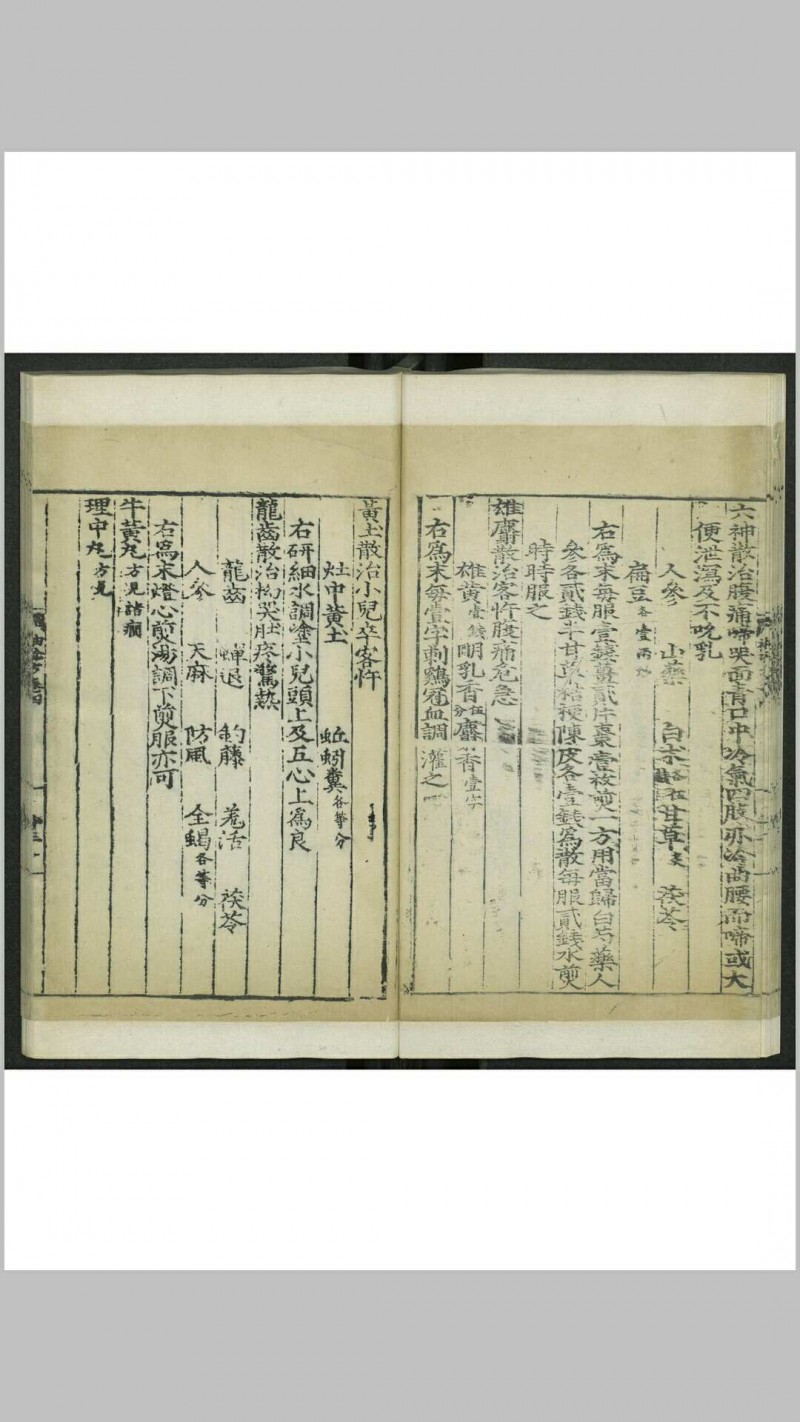 六神散治腹痛啼哭面青口中冷氣四肢亦冷曲腰而啼或大
便泄瀉及不吮乳
人參 山藥 白朮 甘草 茯苓
扁豆各壹兩
右爲末每服壹錢薑貳片棗壹枚煎一方用當歸白芍藥人
參各貳錢半甘草桔梗陳皮各壹錢爲散每服貳錢水煎
時時服之
雄麝散治客忤腹痛危急
雄黃壹錢明乳香伍分麝香壹字
右爲末每壹字刺鷄冠血調灌之
黃土散治小兒卒客忤
灶中黃土 蚯蚓糞各等分
右研細水調塗小兒頭上及五心上爲良
龍齒散治拗哭肚疼驚熱
龍齒 蟬退 釣藤 羌活 茯苓
人參 天麻 防風 全蝎各等分
右爲末燈心煎湯調下煎服亦可
牛黃丸方見諸癇
理中丸方見